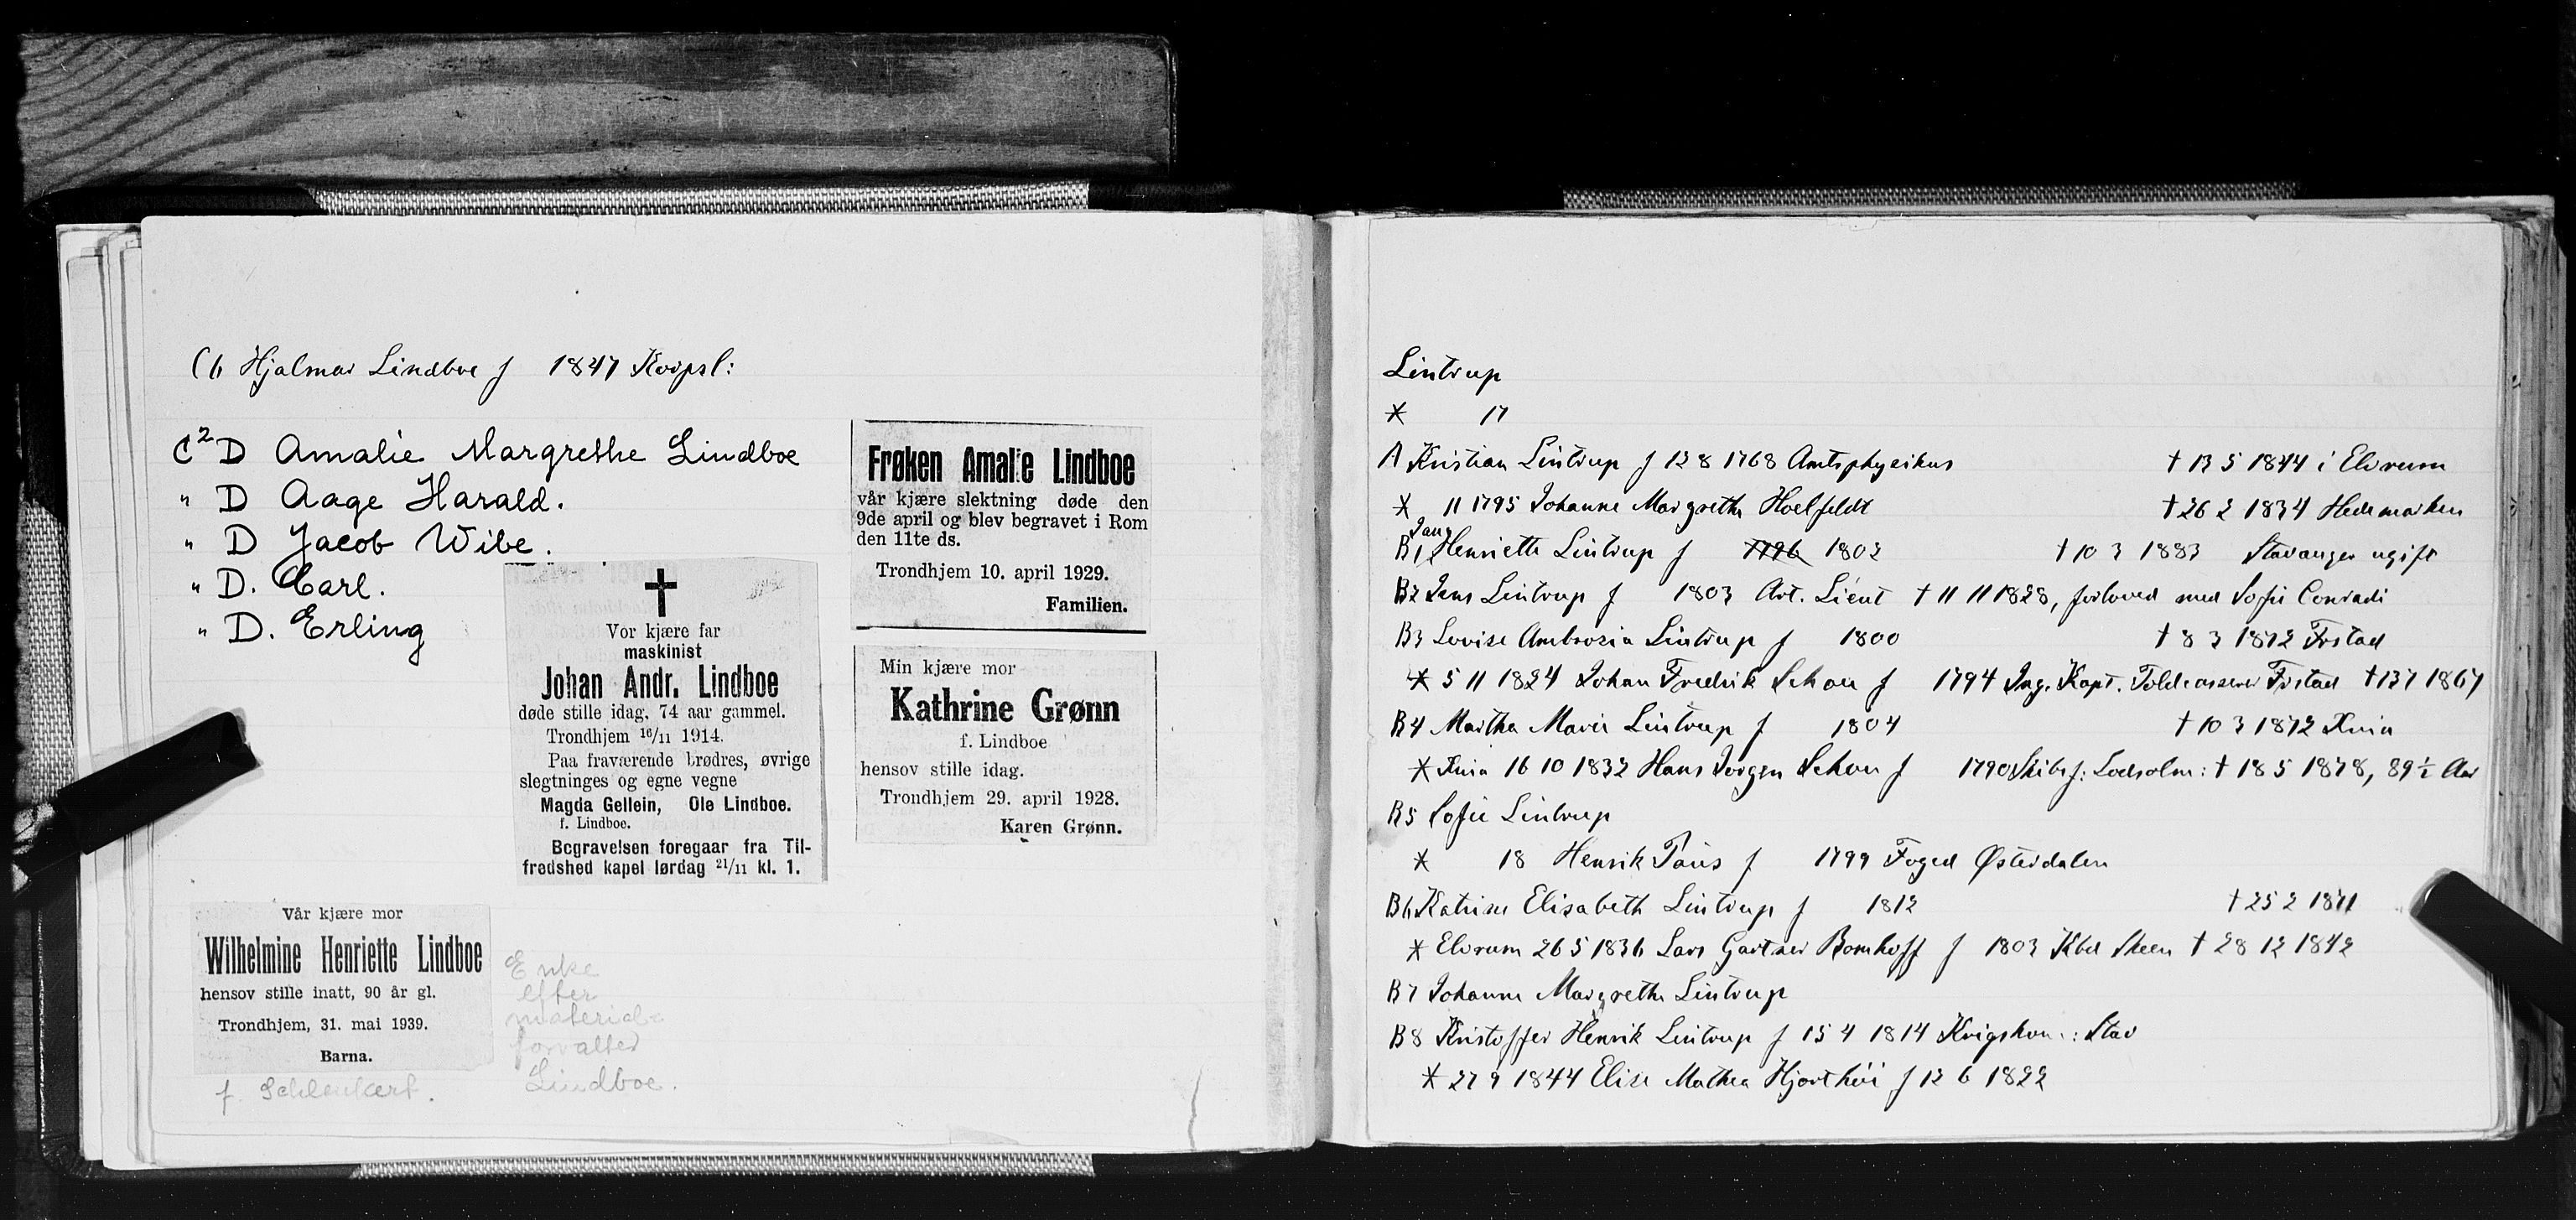 C6 Hjalmar Lindboe f 1847 Korpsl:
C² D Amalie Margrethe Lindboe
" D Aage Harald.
" D Jacob Wibe.
" D. Carl.
" D. Erling
Frøken Amalie Lindboe
vår kjære slektning døde den
9de april og blev begravet i Rom
den 11te ds.
Trondhjem 10. april 1929.
Familien.
Vor kjære far
maskinist
Johan Andr. Lindboe
døde stille idag, 74 aar gammel.
Trondhjem 16/11 1914.
Paa fraværende brødres, øvrige
slegtninges og egne vegne
Magda Gellein, Ole Lindboe.
f. Lindboe.
Begravelsen foregaar fra Til-
fredshed kapel lørdag 21/11 kl. 1.
Min kjære mor
Kathrine Grønn
f. Lindboe
hensov stille idag.
Trondhjem 29. april 1928.
Karen Grønn.
Vår kjære mor
Wilhelmine Henriette Lindboe
hensov stille inatt, 90 år gl.
Trondhjem, 31. mai 1939.
Barna.
f. Schlenkert.
Enke
efter
material-
forvalter
Lindboe.
Lintrup
* 17
A Kristian Lintrup f 12 8 1768 Amtsphysikus † 13 5 1844 i Elvrum
* 11 1795 Johanne Margrethe Hoelfeldt † 26 2 1834 Hedemarken
B1 Henriette Lintrup f 1796 1802 † 10 3 1883 Stavanger ugift
B2 Jens Lintrup f 1803 Art. Lieut † 11 11 1828, forlovet med Sofie Conradi
B3 Lovise Ambrosia Lintrup f 1800 † 8 3 1872 Frstad
* 5 11 1824 Johan Fredrik Schou f 1794 Ing. Kapt. Toldkasserer Frstad † 13 7 1867
B4 Martha Marie Lintrup f 1804 † 10 3 1872 Kria
* Kria 16 10 1832 Hans Jørgen Schou f 1790 Skibsf: Lodsolm: † 18 5 1878, 89½ Aar
B5 Sofie Lintrup
* 18 Henrik Paus f 1799 Foged Østerdalen
B6 Katrine Elisabeth Lintrup f 1812 † 25 2 1871
* Elvrum 26 5 1836 Lars Gartner Bomhoff f 1803 Kbd Skeen † 28 12 1842
B7 Johanne Margrethe Lintrup
B8 Kristoffer Henrik Lintrup f 15 4 1814 Krigskom: Stav
* 27 9 1844 Elise Mathea Hjorthøi f 12 6 1822